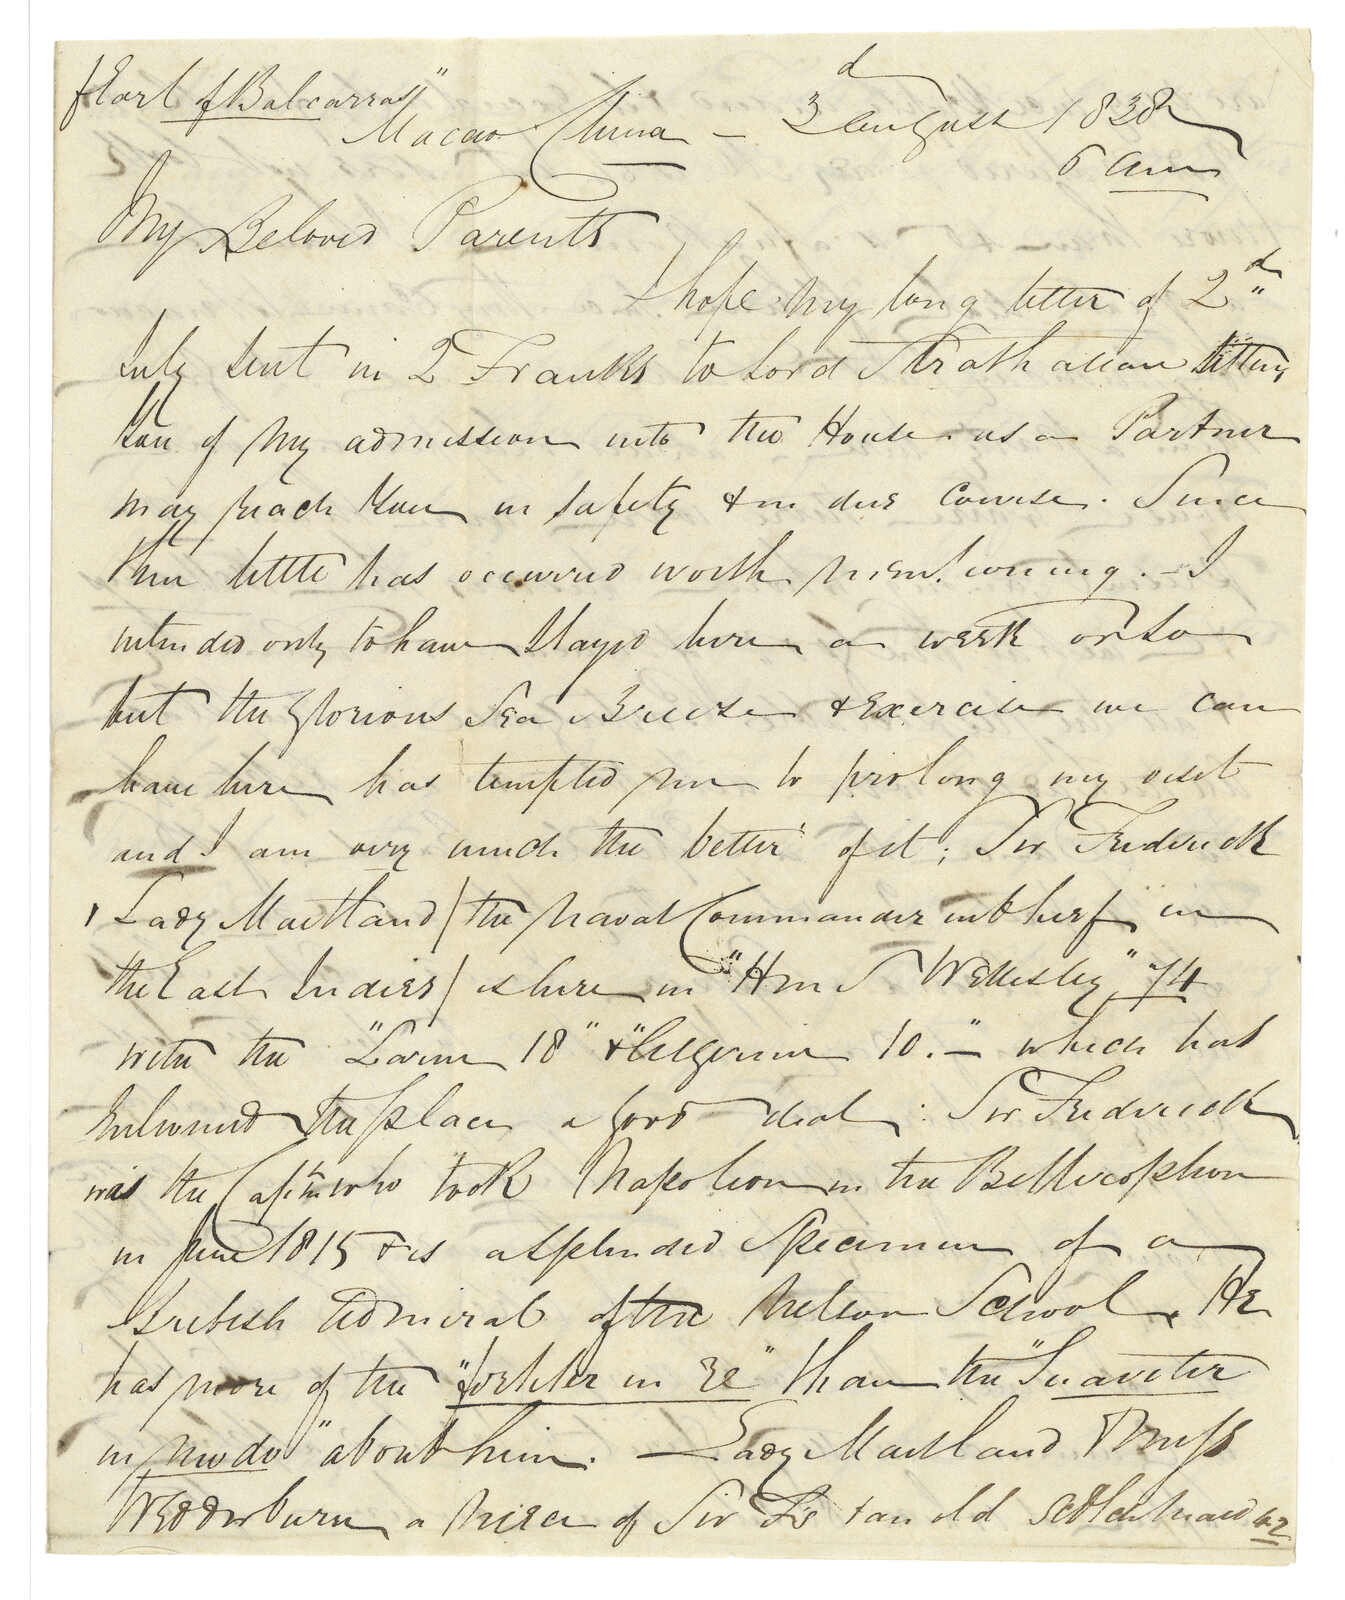 "Earl of Balcarras"
Macao China – 3d August 1838
6 am
My Beloved Parents
I hope my long letter of 2d
July sent in 2 Franks to Lord Strathallan telling
you of my admission into the House as a Partner
may reach you in safety & in due course. Since
then little has occurred worth mentioning. – I
intended only to have stayed here a week or so
but the glorious Sea Breeze & Exercise we can
have here has tempted me to prolong my visit
and I am very much the better of it; Sir Frederick
& Lady Maitland / the Naval Commander in Chief in
the East Indies / is here in "HMS Wellesley" 74
with the "Larne 18" & "Algerine 10." – which has
enlivened the place a good deal: Sir Frederick
was the Captn who took Napoleon in the Bellerophon
in June 1815 & is a splendid specimen of a
British Admiral of the Nelson School. He
has more of the "fortiter in re" than the "Suaviter
in modo" about him. – Lady Maitland & Miss
Wedderburn a niece of Sir Fs & an old Scotch maid 42